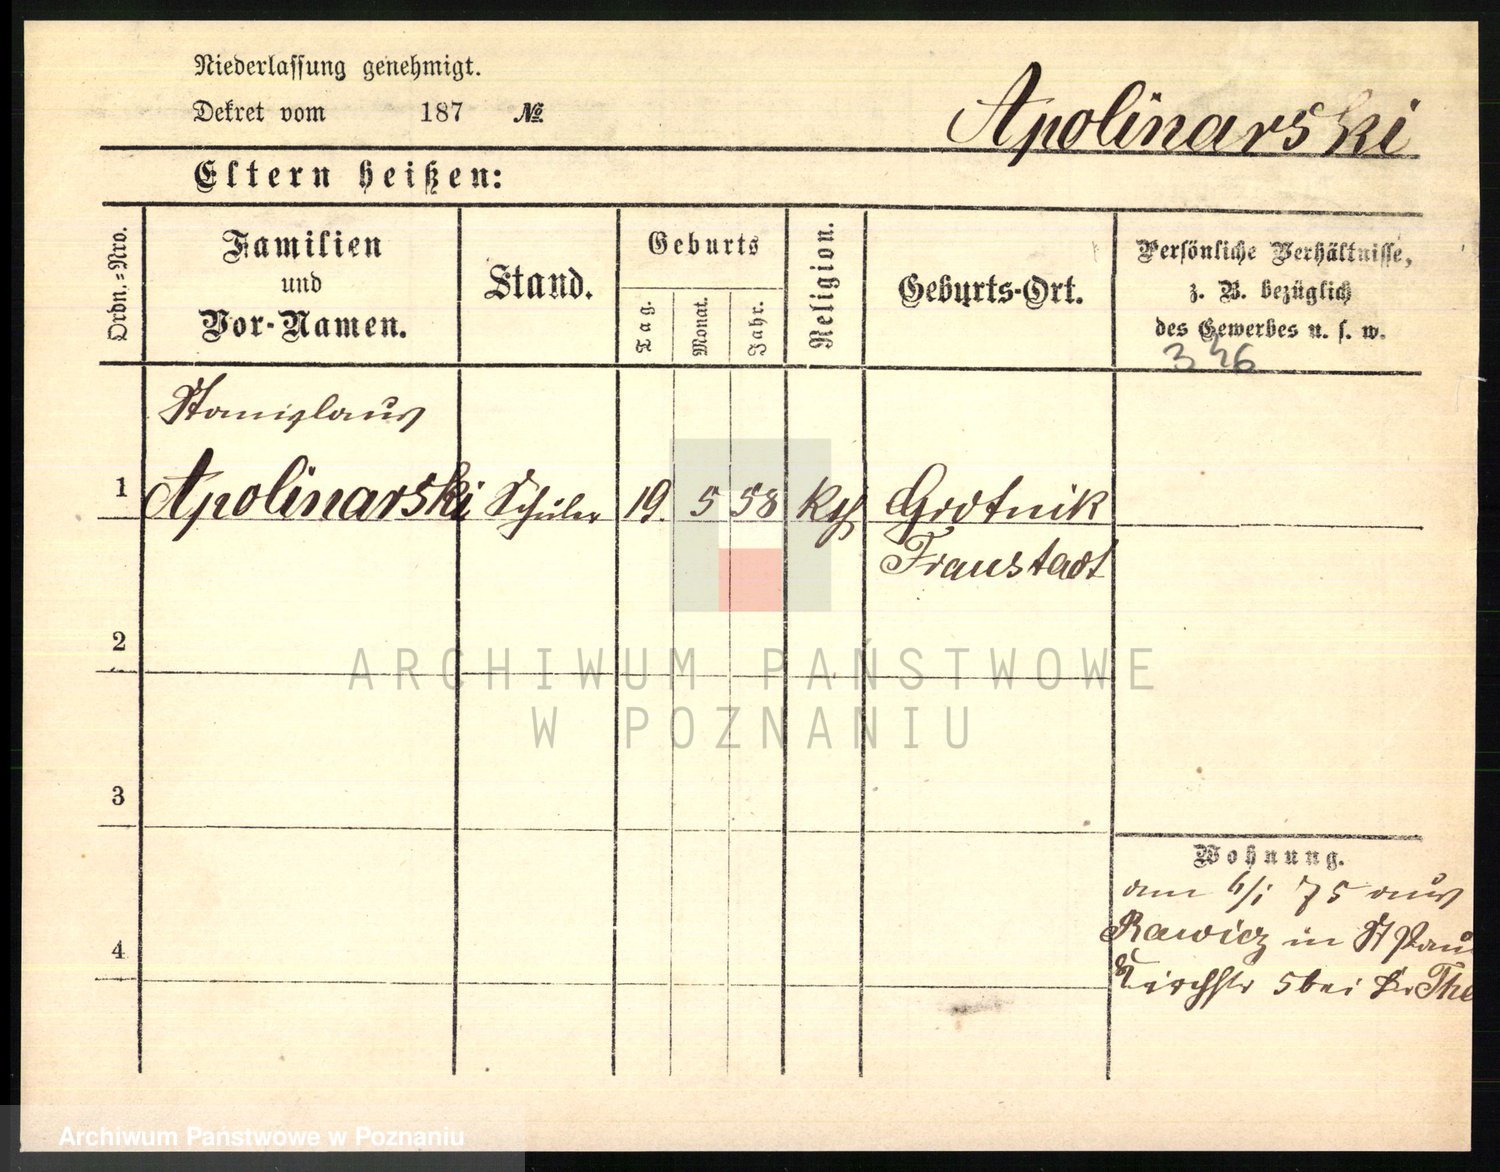 Niederlassung genehmigt.
Dekret vom 187 №
Apolinarski
Eltern heißen:
Ordn.-Nro.
Familien
und
Vor-Namen.
Stand.
Geburts
Tag.
Monat.
Jahr.
Religion.
Geburts-Ort.
Persönliche Verhältnisse,
z. B. bezüglich
des Gewerbes u. s. w.
Stanislaus
1 Apolinarski Schüler 19. 5 58 kth Grotnik
Fraustadt
2
3
4
Wohnung.
am 6/1 75 aus
Rawicz in St Pau
Kirchstr 5 bei Fr The
ARCHIWUM PAŃSTWOWE
W POZNANIU
Archiwum Państwowe w Poznaniu